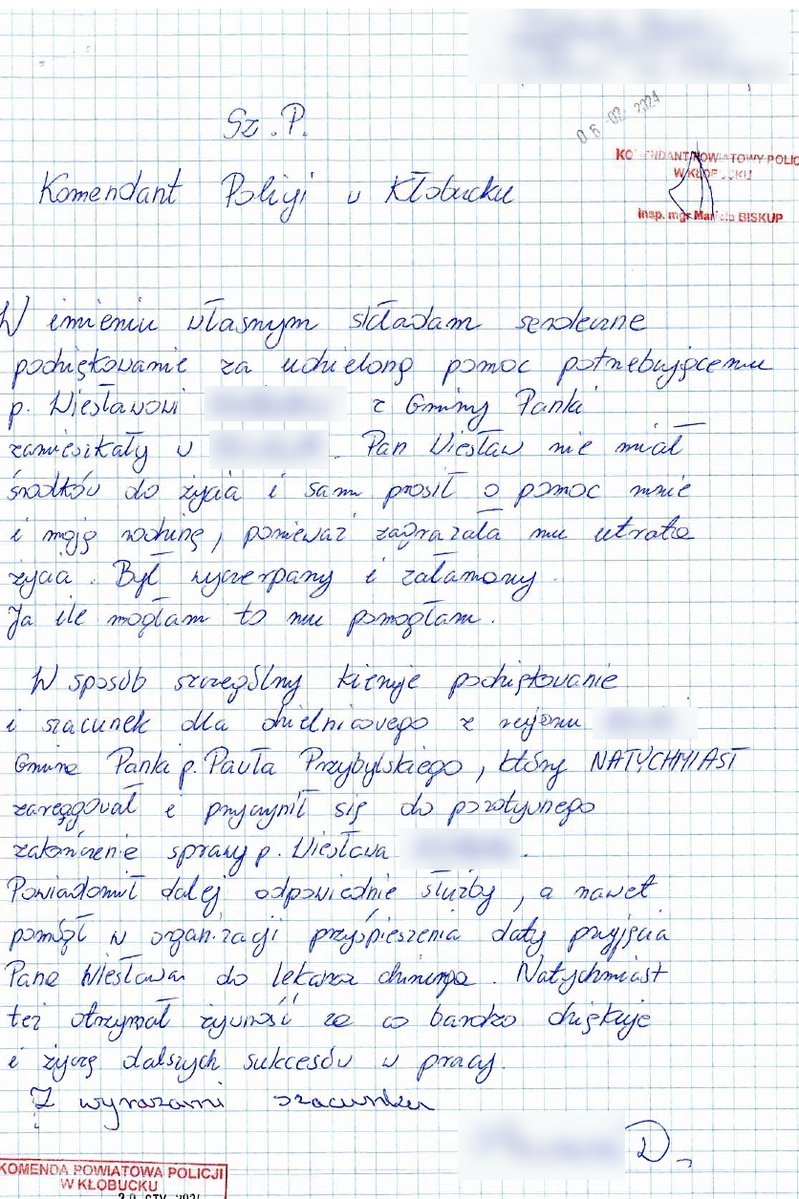 06-02-2024
KOMENDANT POWIATOWY POLIC
W KŁOBUCKU
insp. mgr Mariola BISKUP
Sz. P.
Komendant Policji w Kłobucku
W imieniu własnym składam serdeczne
podziękowanie za udzieloną pomoc potrzebującemu
p. Wiesławowi z Gminy Panki
zamieszkały w . Pan Wiesław nie miał
środków do życia i sam prosił o pomoc mnie
i moją rodzinę, ponieważ zagrażała mu utrata
życia. Był wyczerpany i załamany.
Ja ile mogłam to mu pomogłam.
W sposób szczególny kieruję podziękowanie
i szacunek dla dzielnicowego z rejonu
Gmina Panki p. Pawła Przybylskiego, który NATYCHMIAST
zareagował i przyczynił się do pozytywnego
zakończenie sprawy p. Wiesława .
Powiadomił dalej odpowiednie służby, a nawet
pomógł w organizacji przyśpieszenia daty przyjęcia
Pana Wiesława do lekarza chirurga. Natychmiast
też otrzymał żywność za co bardzo dziękuję
i życzę dalszych sukcesów w pracy.
Z wyrazami szacunku
D.
KOMENDA POWIATOWA POLICJI
W KŁOBUCKU